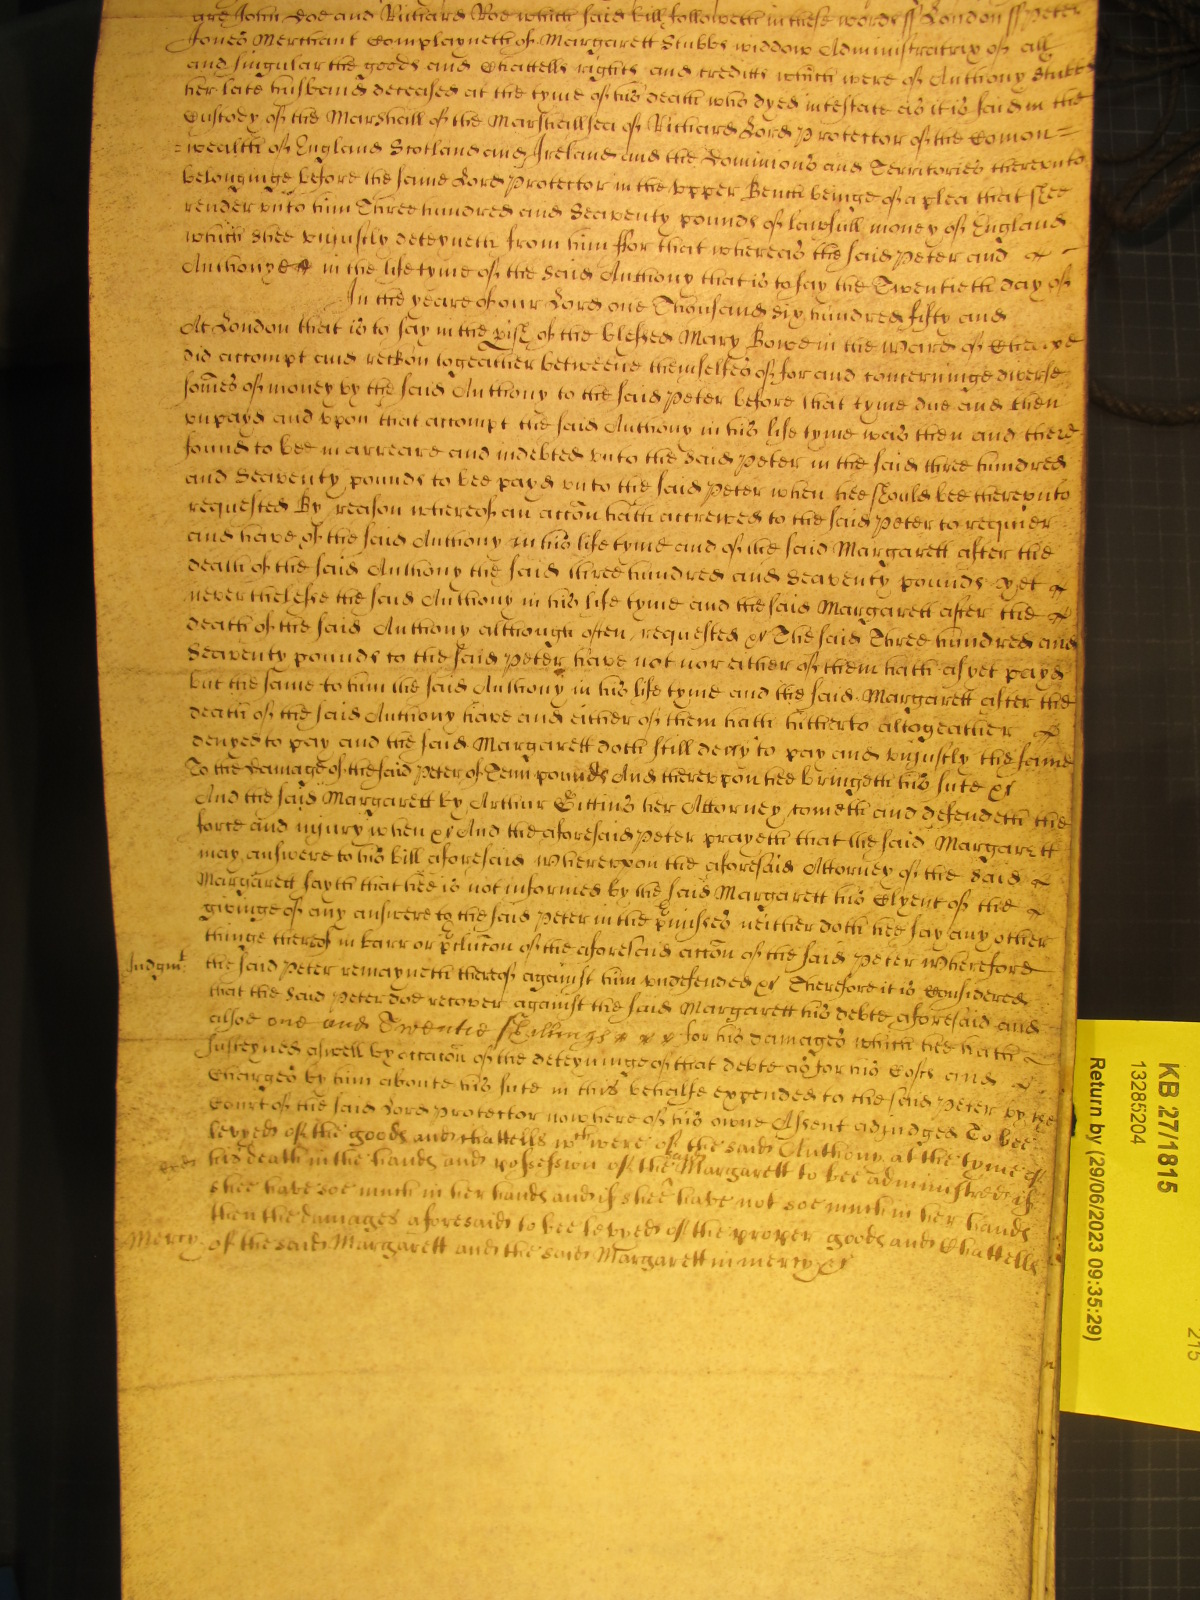 are John Doe and Richard Roe which said bill followeth in these words ss London ss Peter
Jones Merchant Complayneth of Margarett Stubbs widdow Administratrix of all
and singular the goods and Chattells rights and creditts which were of Anthony Stubbs
her late husband deceased at the tyme of his death who dyed intestate as it is said in the
Custody of the Marshall of the Marshallsea of Richard Lord Protector of the Comon=
=wealth of England Scotland and Ireland and the Dominions and Territories thereunto
belonginge before the same Lord Protector in the upper Bench beinge of a plea that shee
render unto him Three hundred and Seaventy pounds of lawfull money of England
which shee unjustly deteyneth from him ffor that whereas the said Peter and
Anthony in the life tyme of the said Anthony that is to say the Twentieth day of
In the yeare of our Lord one Thousand six hundred fifty and
At London that is to say in the pish of the blessed Mary Bowe in the Ward of Cheape
did accompt and reckon togeather betweene themselfes of for and concerninge diverse
somes of money by the said Anthony to the said Peter before that tyme due and then
unpayd and upon that accompt the said Anthony in his life tyme was then and there
found to bee in arreare and indebted unto the said Peter in the said three hundred
and Seaventy pounds to bee payd unto the said Peter when hee should bee thereunto
requested By reason whereof an accon hath accrewed to the said Peter to requier
and have of the said Anthony in his life tyme and of the said Margarett after the
death of the said Anthony the said three hundred and Seaventy pounds yet
neverthelesse the said Anthony in his life tyme and the said Margarett after the
death of the said Anthony although often requested &c The said Three hundred and
Seaventy pounds to the said Peter have not nor either of them hath as yet payd
but the same to him the said Anthony in his life tyme and the said Margarett after the
death of the said Anthony have and either of them hath hitherto altogeather
denyed to pay and the said Margarett doth still deny to pay and unjustly the same
To the damage of the said Peter of Tenn pounds And thereupon hee bringeth his sute &c
And the said Margarett by Arthur Gittins her Attorney cometh and defendeth the
force and injury when &c And the aforesaid Peter prayeth that the said Margarett
may answere to his bill aforesaid Whereupon the aforesaid Attorney of the said
Margarett sayth that hee is not informed by the said Margarett his Clyent of the
givinge of any answere to the said Peter in the pmisses neither doth hee say any other
thinge thereof in barr or pclusion of the aforesaid accon of the said Peter Wherefore
Judgmt the said Peter remayneth thereof against him undefended &c Therefore it is Considered
that the said Peter doe recover against the said Margarett his debte aforesaid and
alsoe one and Twentie shillings for his damages which hee hath
susteyned aswell by occaion of the deteyninge of that debte as for his Costs and
Charges by him aboute his sute in this behalfe expended to the said Peter by the
Court of the said Lord Protector now here of his owne Assent adjudged To bee
levyed of the goods and chattells wch were of the said Anthony at the tyme of
his death in the hands and possession of the said Margarett to bee administred if
shee have soe much in her hands and if shee have not soe much in her hands
then the damages aforesaid to bee levyed of the proper goods and Chattells
Mercy of the said Margarett and the said Margarett in mercy &c
KB 27/1815
13285204
Return by (29/06/2023 09:35:29)